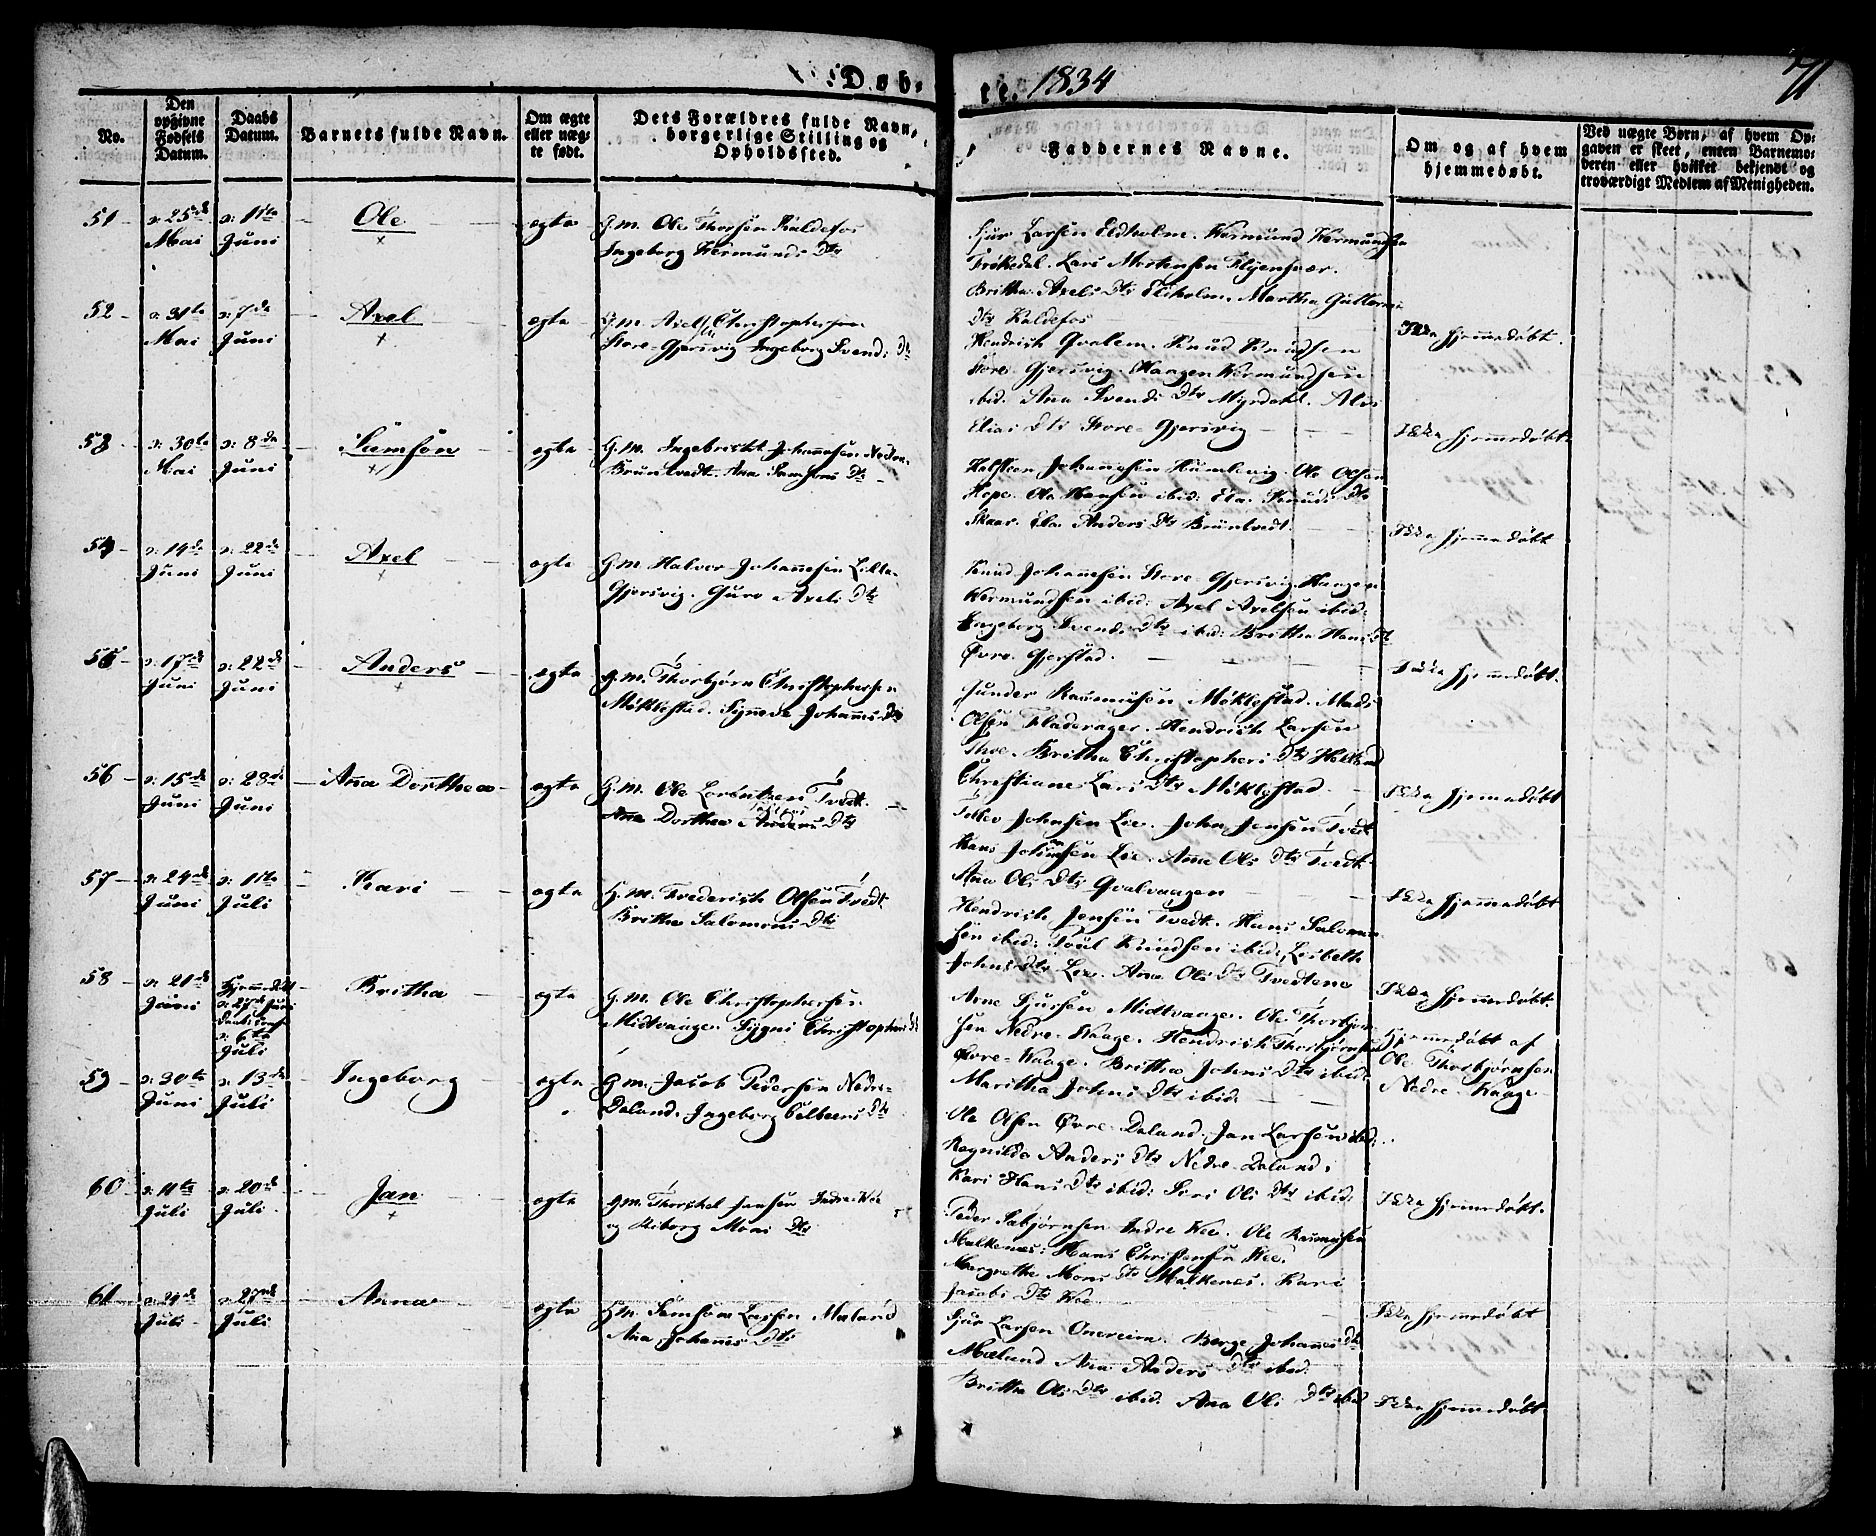 Døb-
te. 1834
71
No.
Den opgivne Fødsels Datum.
Daabs Datum.
Barnets fulde Navn.
Om ægte eller uæg- te født.
Dets Forældres fulde Navn, borgerlige Stilling og Opholdssted.
Faddernes Navne.
Om og af hvem hjemmedøbt.
Ved uægte Børn, af hvem Op- gaven er skeet, enten Barnemo- deren eller hvilket bekjendt og troværdigt Medlem af Menigheden.
51 25de Mai 1ste Juni Ole ægte G.M. Ole Thorsen Kaldefos
Ingeborg Wermunds Dtr
Sjur Larsen Eldholm. Wermund Wermundsen
Frøkedal. Lars Mortensen
Britha Axels Dtr Eldholm. Martha Guttorms
Dtr Kaldefos
Ikke hjemmedøbt.
52 31te Mai 7de Juni Axel ægte G.M. Axel Christophersen
Store-Gjersvig Ingeborg Svends Dtr
Hendrich Qvalem. Knud Knudsen
Store-Gjersvig. Haagen Wermundsen
ibid: Anna Svends Dtr Myrdahl.
Elias Dtr Store-Gjersvig
Ikke hjemmedøbt.
53 30te Mai 8de Juni Samson ægte G.M. Ingebricht Johannesen Nedre-
Bruntvedt. Ana Samsons Dtr
Halsteen Johannesen Humlevig. Ole Olsen
Hope. Ole Hansen ibid: Ela Knuds Dtr
Skaar. Ela Anders Dtr Bruntvedt.
Ikke hjemmedøbt
54 14de Juni 22de Juni Axel ægte G.M. Halvor Johannesen Litle-
Gjersvig. Guro Axels Dtr
Knud Johannesen Store-Gjersvig. Haagen
Wermundsen ibid: Axel Axelsen ibid:
Ingeborg Svends Dtr ibid: Britha Hans Dtr
Øvre-Gjerstad.
Ikke hjemmedøbt.
55 17de Juni 22de Juni Anders ægte G.M. Thorbjørn Christophersen
Møklestad. Johannes Dtr
Gunder Rasmusen Møklestad. Mads
Olsen Fladerager. Hendrich Larsen
Thoe. Britha Christophers Dtr
Christiane Lars Dtr Møklestad.
Ikke hjemmedøbt
56 15de Juni 23de Juni Anna Dorthea ægte G.M. Ole Lorentzen Tvedt.
Anna Dorthea Anders Dtr
Tollev Johnsen Lie. John Jensen Tvedt
Hans Johansen Lie. Anna Ols Dtr Tvedt
Anna Ols Dtr Qvalvaagen
Ikke hjemmedøbt
57 24de Juni 1ste Juli Kari ægte H.M. Frederich Olsen Tvedt
Britha Salomons Dtr
Hendrich Jensen Tvedt. Hans Salomon-
sen ibid: Knudsen ibid: Lisbeth
Johns Dtr Lie. Anna Ols Dtr Tvedtene
Ikke hjemmedøbt.
58 21de Juni Hjemmedøbt 27de Juni 6te Juli Britha ægte G.M. Ole Christophersen
Midtvaage. Christophers Dtr
Arne Sjursen Midtvaage. Ole Thorbjørn-
sen Nedre-Waage. Hendrich Thorbjørnsen
Øvre-Waage. Britha Johns Dtr ibid:
Maritha Johns Dtr ibid:
Hjemmedøbt af
Ole Thorbjørnsen
Nedre-Waage
59 30te Juni 13de Juli Ingeborg ægte G.M. Jacob Pedersen Nedre-
Daland. Ingeborg Dtr
Ole Olsen Øvre-Daland. Jan Larsen ibid:
Ragnilda Anders Dtr Nedre-Daland.
Kari Hans Dtr ibid: Siri Ols Dtr ibid:
Ikke hjemmedøbt.
60 11te Juli 20de Juli Jan ægte G.M. Thorchel Jansen Indre-Wee
og Mons Dtr
Peder Indre Wee. Ole Rasmusen
Malkenes. Hans Christensen Wee.
Margrethe Mons Dtr Malkenes. Kari
Jacobs Dtr Wee
Ikke hjemmedøbt
61 24de Juli 27de Juli Anna ægte H.M. Samson Larsen Mæland
Ana Johannes Dtr
Sjur Larsen Onereim. Johannes Dtr
Mæland Anna Anders Dtr ibid:
Britha Ols Dtr ibid: Anna Ols Dtr ibid
Ikke hjemmedøbt.